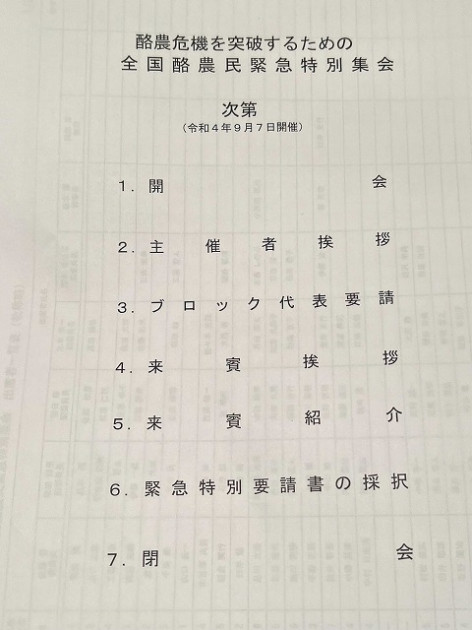 酪農危機を突破するための
全国酪農民緊急特別集会
次第
（令和４年９月７日開催）
１．開会
２．主催者挨拶
３．ブロック代表要請
４．来賓挨拶
５．来賓紹介
６．緊急特別要請書の採択
７．閉会